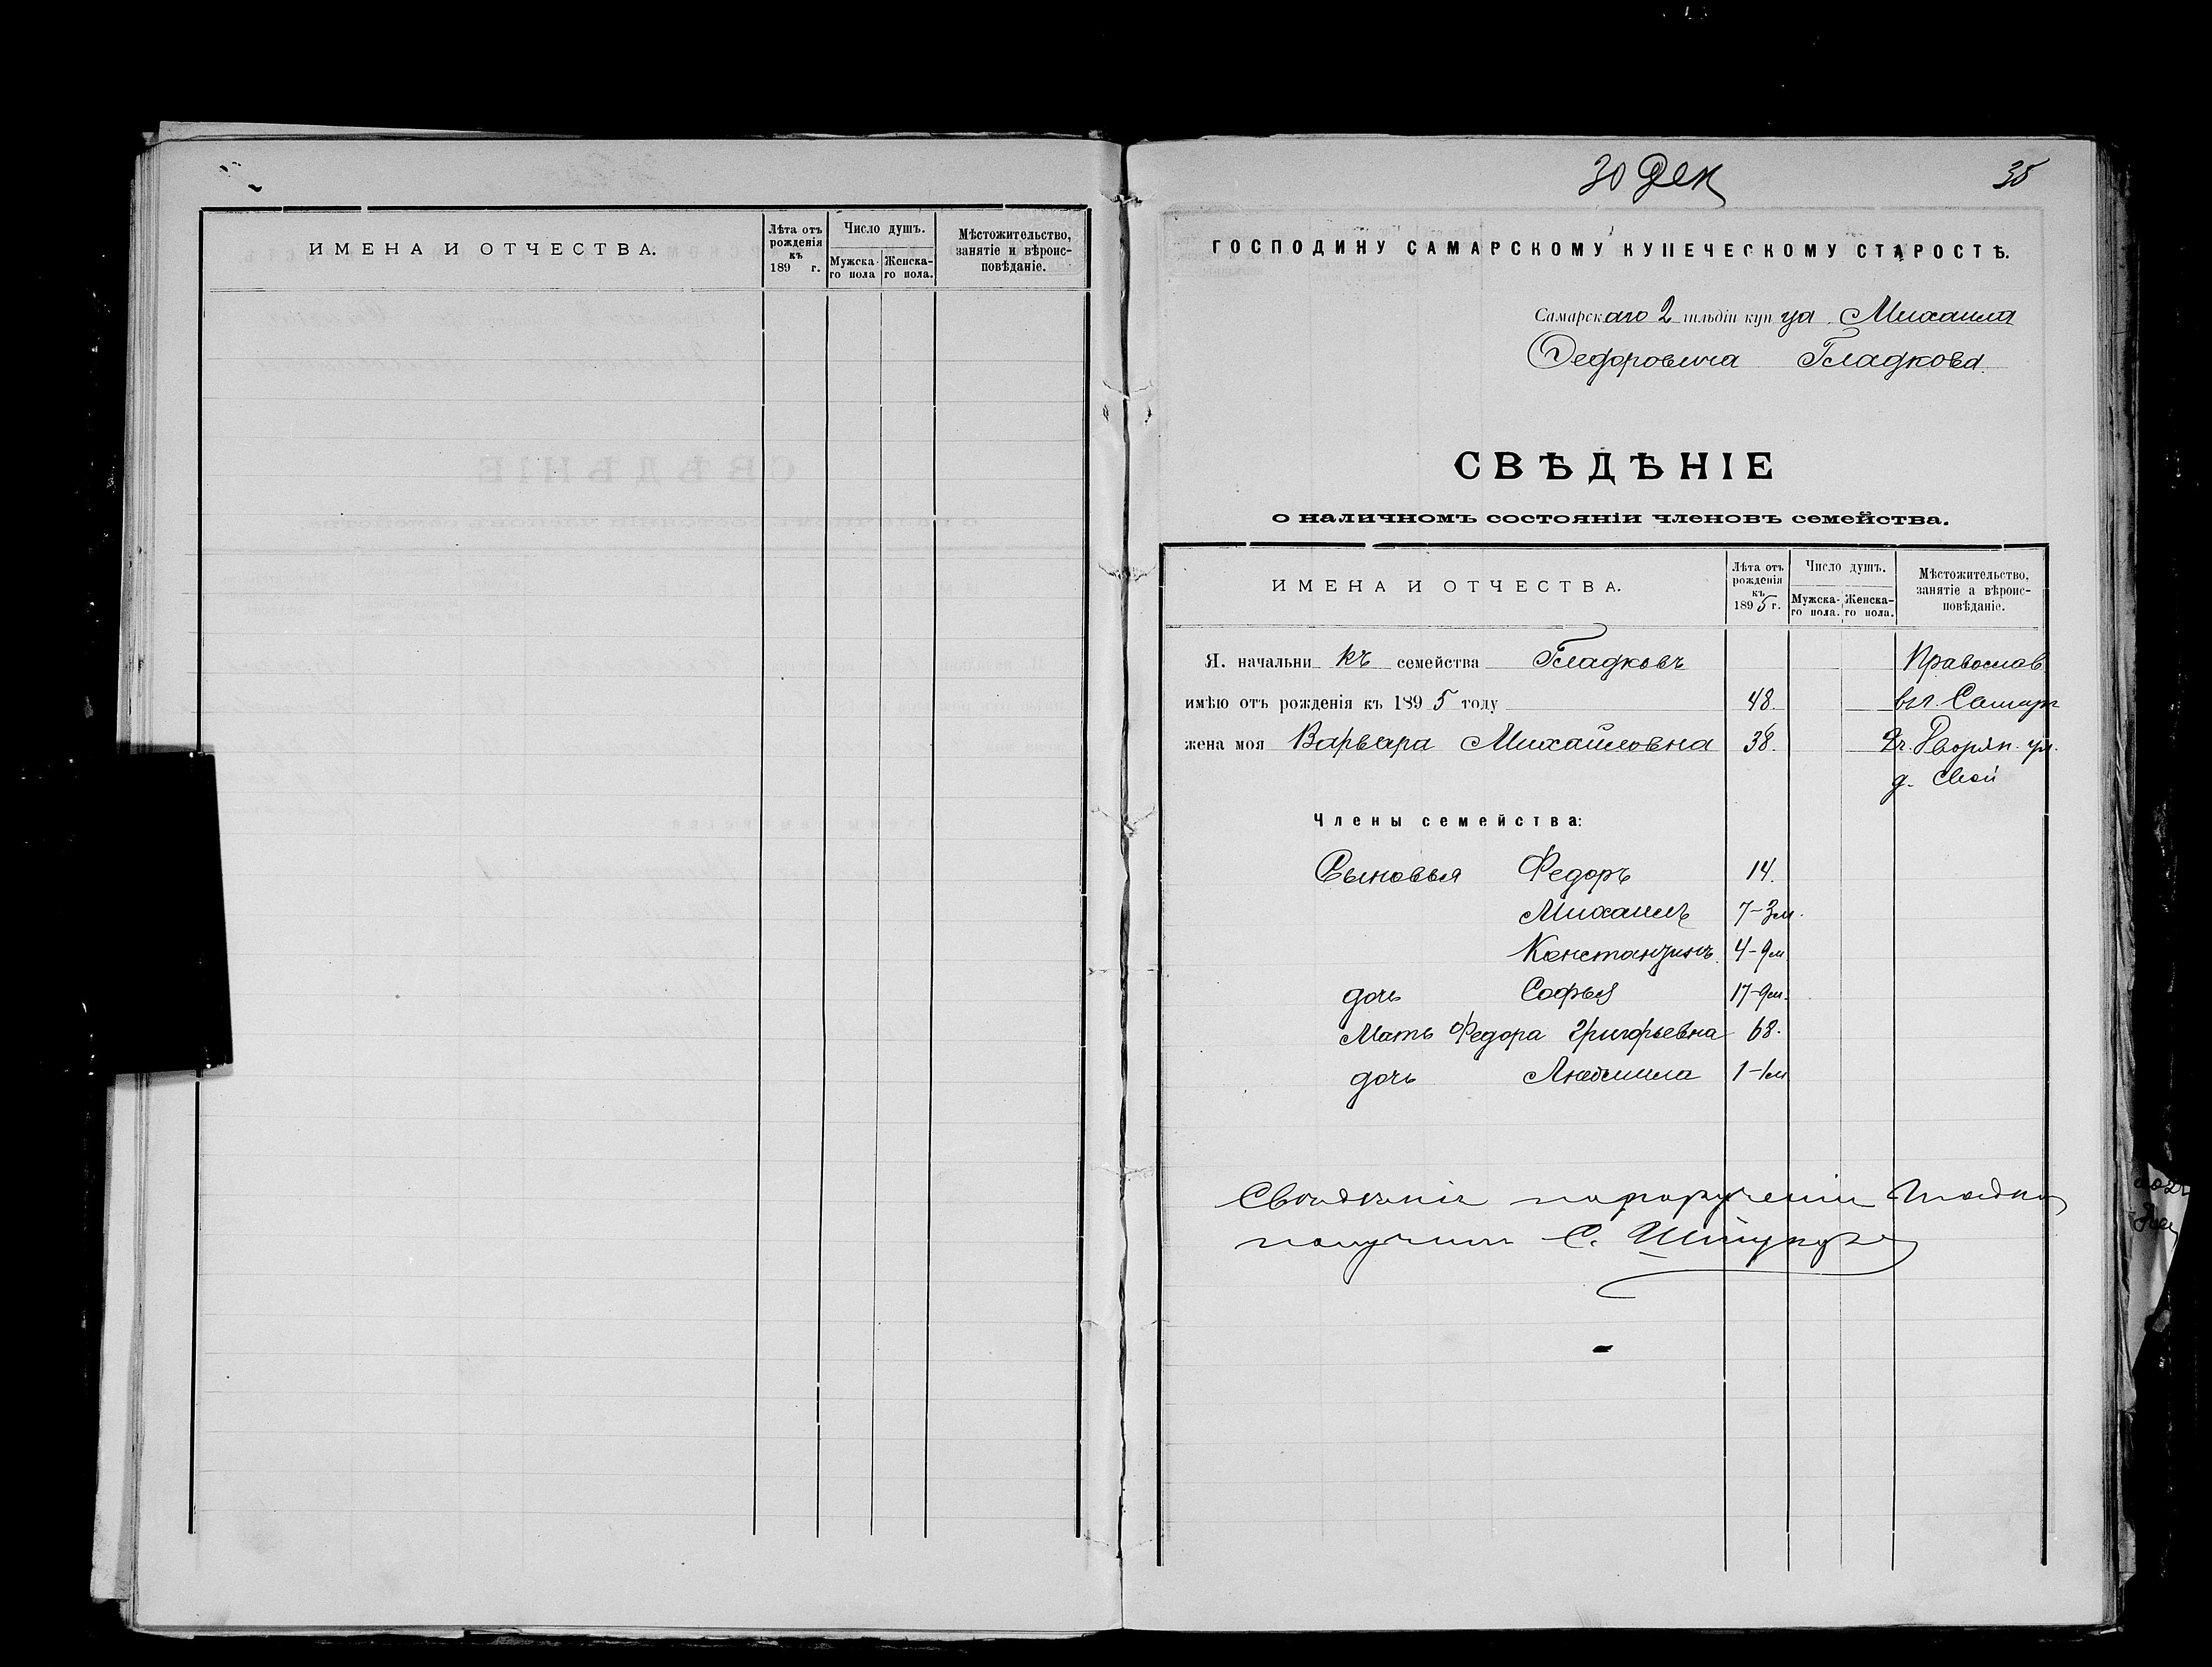 ИМЕНА И ОТЧЕСТВА.
Лѣта отъ рожденія къ 189 г.
Число душъ.
Мужска-го пола
Женска-го пола.
Мѣстожительство, занятіе и вѣроис-повѣданіе.
30 Дек
35
ГОСПОДИНУ САМАРСКОМУ КУПЕЧЕСКОМУ СТАРОСТѢ.
Самарскаго 2 гильдіи купца Михаила
Федоровича Гладкова.
СВѢДѢНІЕ
о наличномъ состояніи членовъ семейства.
ИМЕНА И ОТЧЕСТВА.
Лѣта отъ рожденія къ 1895 г.
Число душъ.
Мужска-го пола.
Женска-го пола.
Мѣстожительство, занятіе а вѣроис-повѣданіе.
Я. начальникъ семейства Гладковъ Православ
имѣю отъ рожденія къ 1895 году 48. въ г. Самарѣ
жена моя Варвара Михайловна 38. Дворян. ул.
д. свой
Члены семейства:
Сыновья Федоръ 14.
Михаилъ 7-3м.
Константинъ. 4-9м
дочь Софья 17-9м.
Мать Федора Григорьевна 68.
дочь Людмила 1-1м
по порученіи
получилъ С.